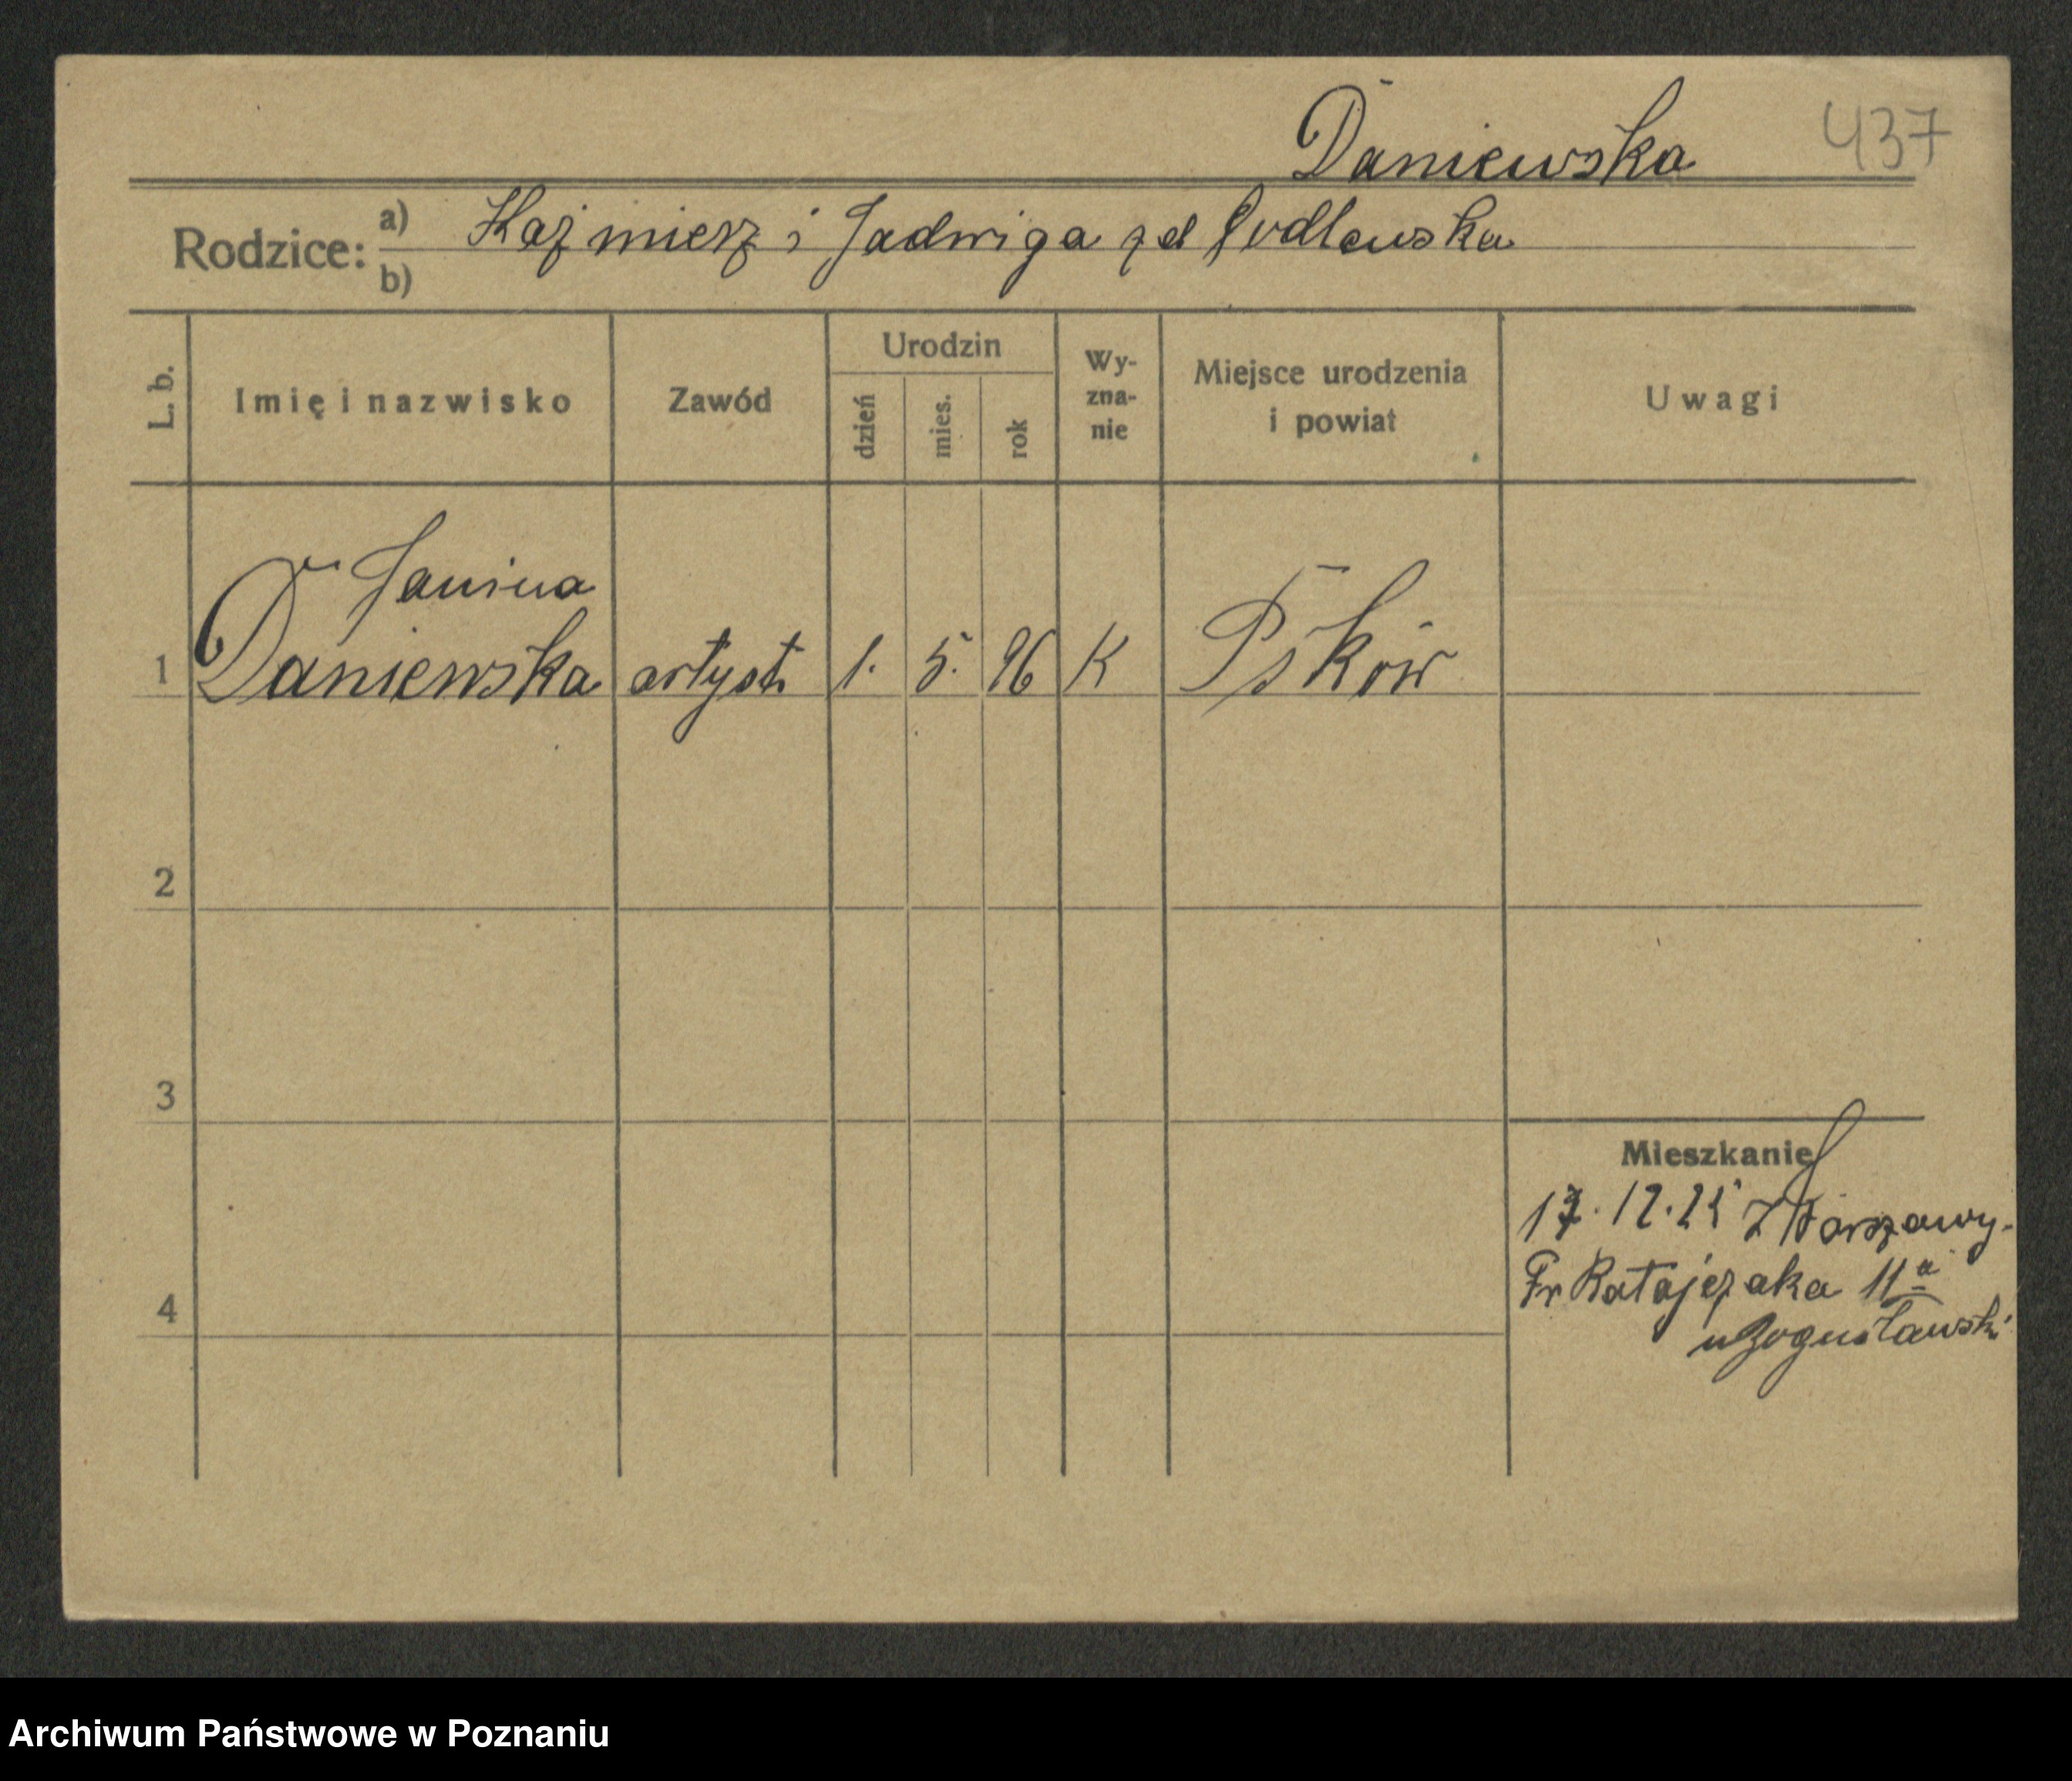 Daniewska 437
Rodzice: a) Kazmierz i Jadwiga zd Godlewska
b)
L. b. Imię i nazwisko Zawód Urodzin dzień mies. rok Wy-zna-nie Miejsce urodzenia i powiat Uwagi
Janina
1 Daniewska artyst. 1. 5. 96 K Psków
2
3
Mieszkanie
12.25 z Warszawy.
Fr Ratajczaka 11a
4
u Bogusławski
Archiwum Państwowe w Poznaniu